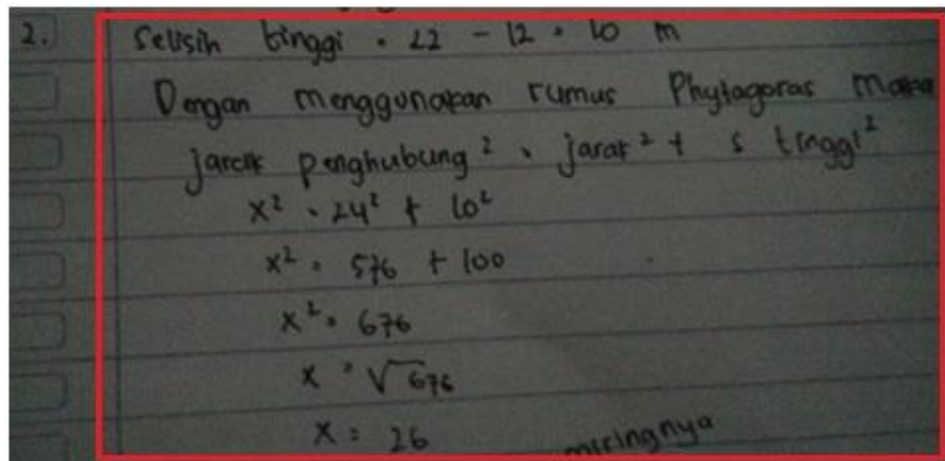 2. Selisih tinggi = 22 - 12 = 10 m
Dengan menggunakan rumus Phytagoras maka
jarak penghubung² = jarak² + s tinggi²
x² = 24² + 10²
x² = 576 + 100
x² = 676
x = √676
x = 26
miringnya